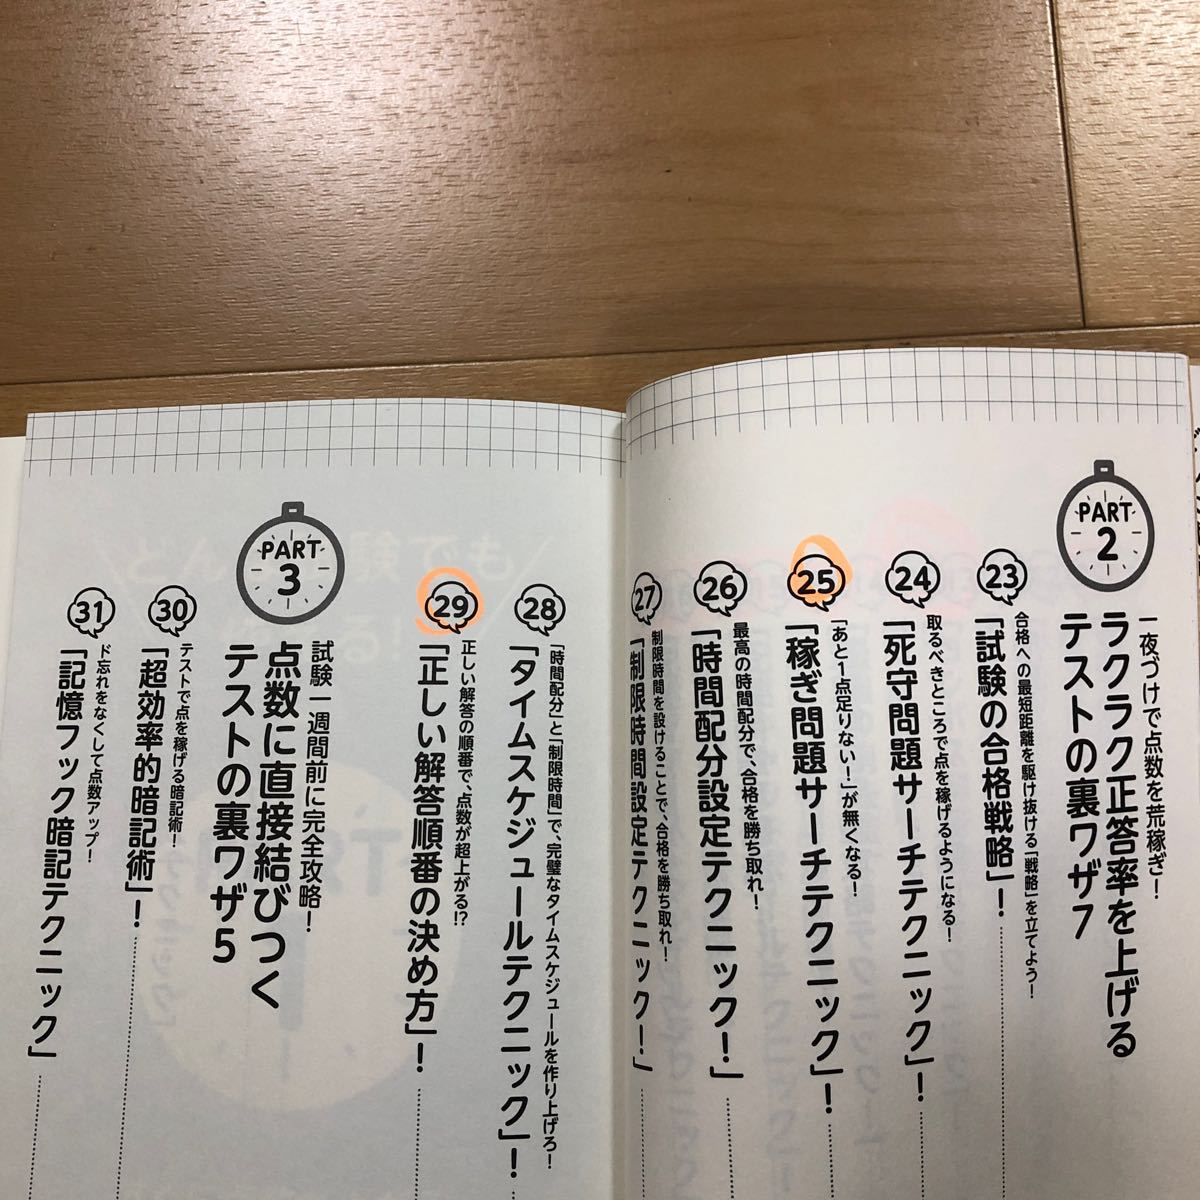 PART
2
一夜づけで点数を荒稼ぎ!
ラクラク正答率を上げる
テストの裏ワザ7
23
合格への最短距離を駆け抜ける「戦略」を立てよう!
「試験の合格戦略」!
24
取るべきところで点を稼げるようになる!
「死守問題サーチテクニック」!
25
「あと1点足りない!」が無くなる!
「稼ぎ問題サーチテクニック」!
26
最高の時間配分で、合格を勝ち取れ!
「時間配分設定テクニック!」
27
制限時間を設けることで、合格を勝ち取れ!
「制限時間設定テクニック!」
28
「時間配分」と「制限時間」で、完璧なタイムスケジュールを作り上げろ!
「タイムスケジュールテクニック」!
29
正しい解答の順番で、点数が超上がる!?
「正しい解答順番の決め方」!
PART
3
試験一週間前に完全攻略!
点数に直接結びつく
テストの裏ワザ5
30
テストで点を稼げる暗記術!
「超効率的暗記術」!
31
ド忘れをなくして点数アップ!
「記憶フック暗記テクニック」